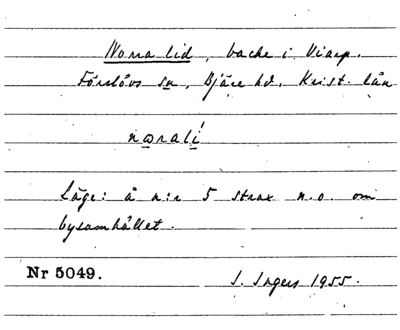 Norra lid, backe i Viarp.
Förslövs sn, Bjäre hd. Krist. län
nɷralí
Läge: å n:r 5 strax n.o. om
bysamhället.
Nr 5049.
I. Ingers 1955.